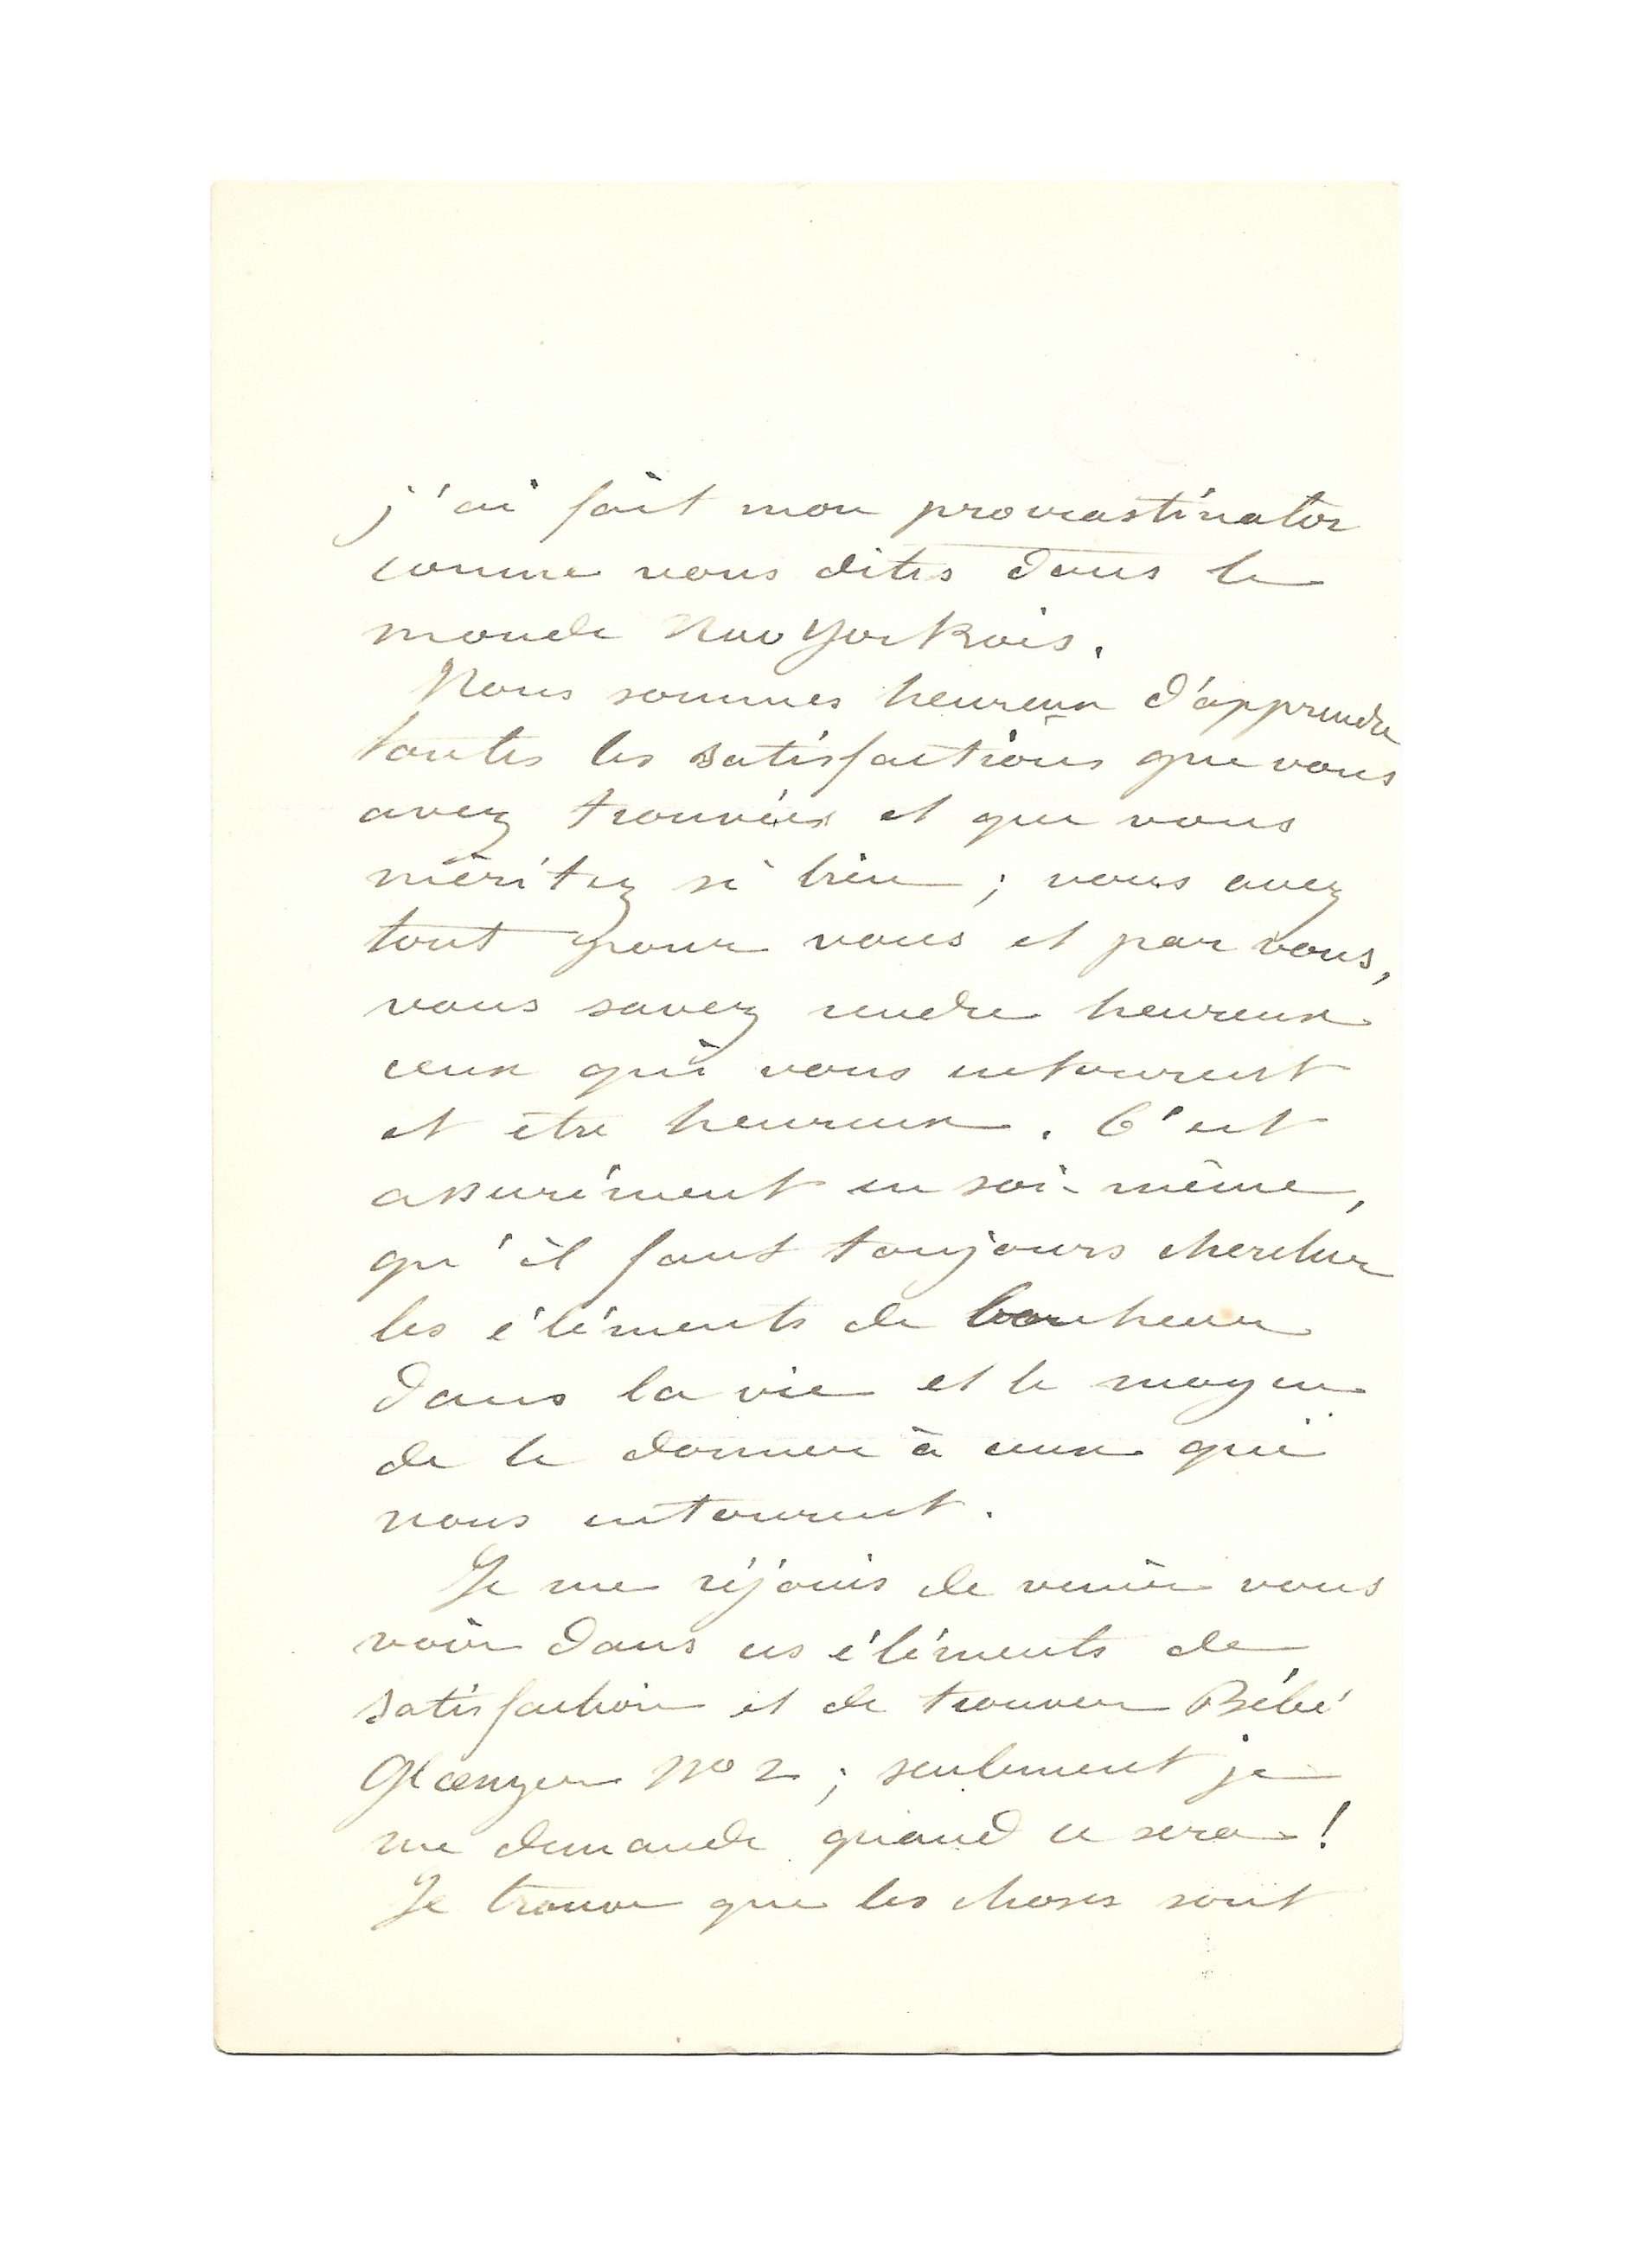 j'ai fait mon procrastinator
comme vous dites dans le
monde New Yorkois.
Nous sommes heureux d'apprendre
toutes les satisfactions que vous
avez trouvées et que vous
méritez si bien ; vous avez
tout pour vous et par vous,
vous savez rendre heureux
ceux qui vous entourent
et être heureux. C'est
assurément en soi-même,
qu'il faut toujours chercher
les éléments de bonheur
dans la vie et le moyen
de le donner à ceux qui
nous entourent.
Je me réjouis de venir vous
voir dans ces éléments de
satisfaction et de trouver Bébé
Glænzer No 2 ; seulement je
me demande quand ce sera !
Je trouve que les choses sont